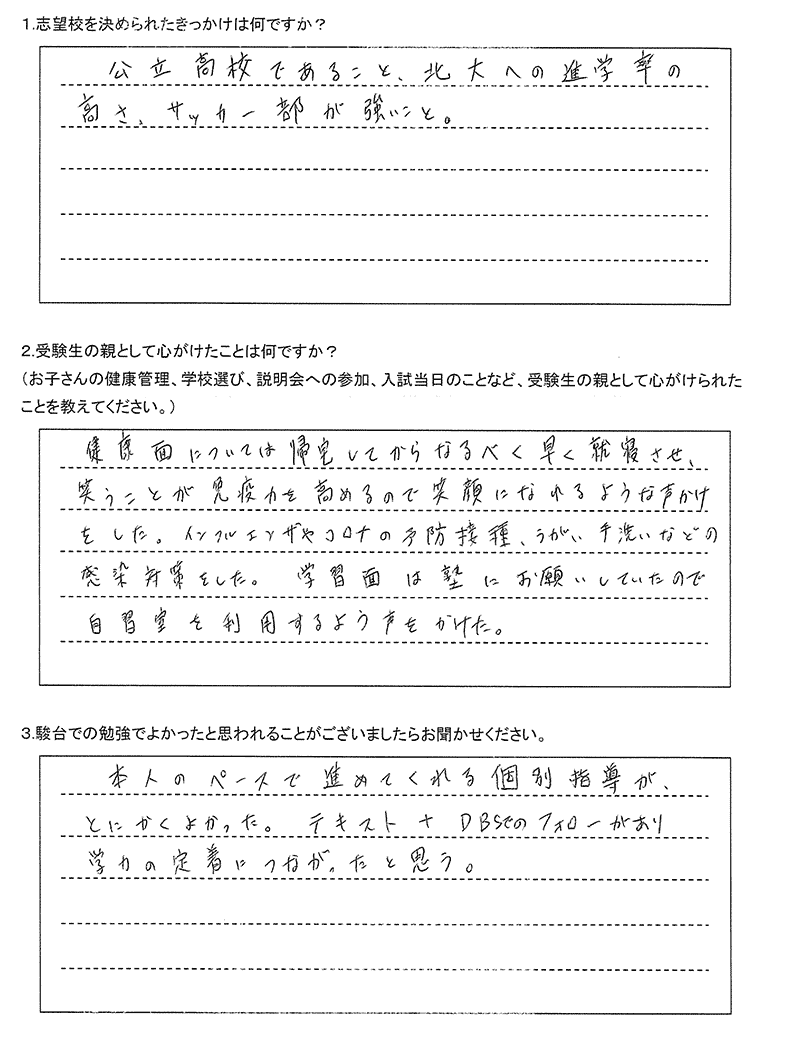 1.志望校を決められたきっかけは何ですか？
公立高校であること、北大への進学率の
高さ、サッカー部が強いこと。
2.受験生の親として心がけたことは何ですか？
（お子さんの健康管理、学校選び、説明会への参加、入試当日のことなど、受験生の親として心がけられた
ことを教えてください。）
健康面については帰宅してからなるべく早く就寝させ、
笑うことが免疫力を高めるので笑顔になれるような声かけ
をした。インフルエンザやコロナの予防接種、うがい手洗いなどの
感染対策をした。学習面は塾にお願いしていたので
自習室を利用するよう声をかけた。
3.駿台での勉強でよかったと思われることがございましたらお聞かせください。
本人のペースで進めてくれる個別指導が、
とにかくよかった。テキスト＋DBSでのフォローがあり
学力の定着につながったと思う。